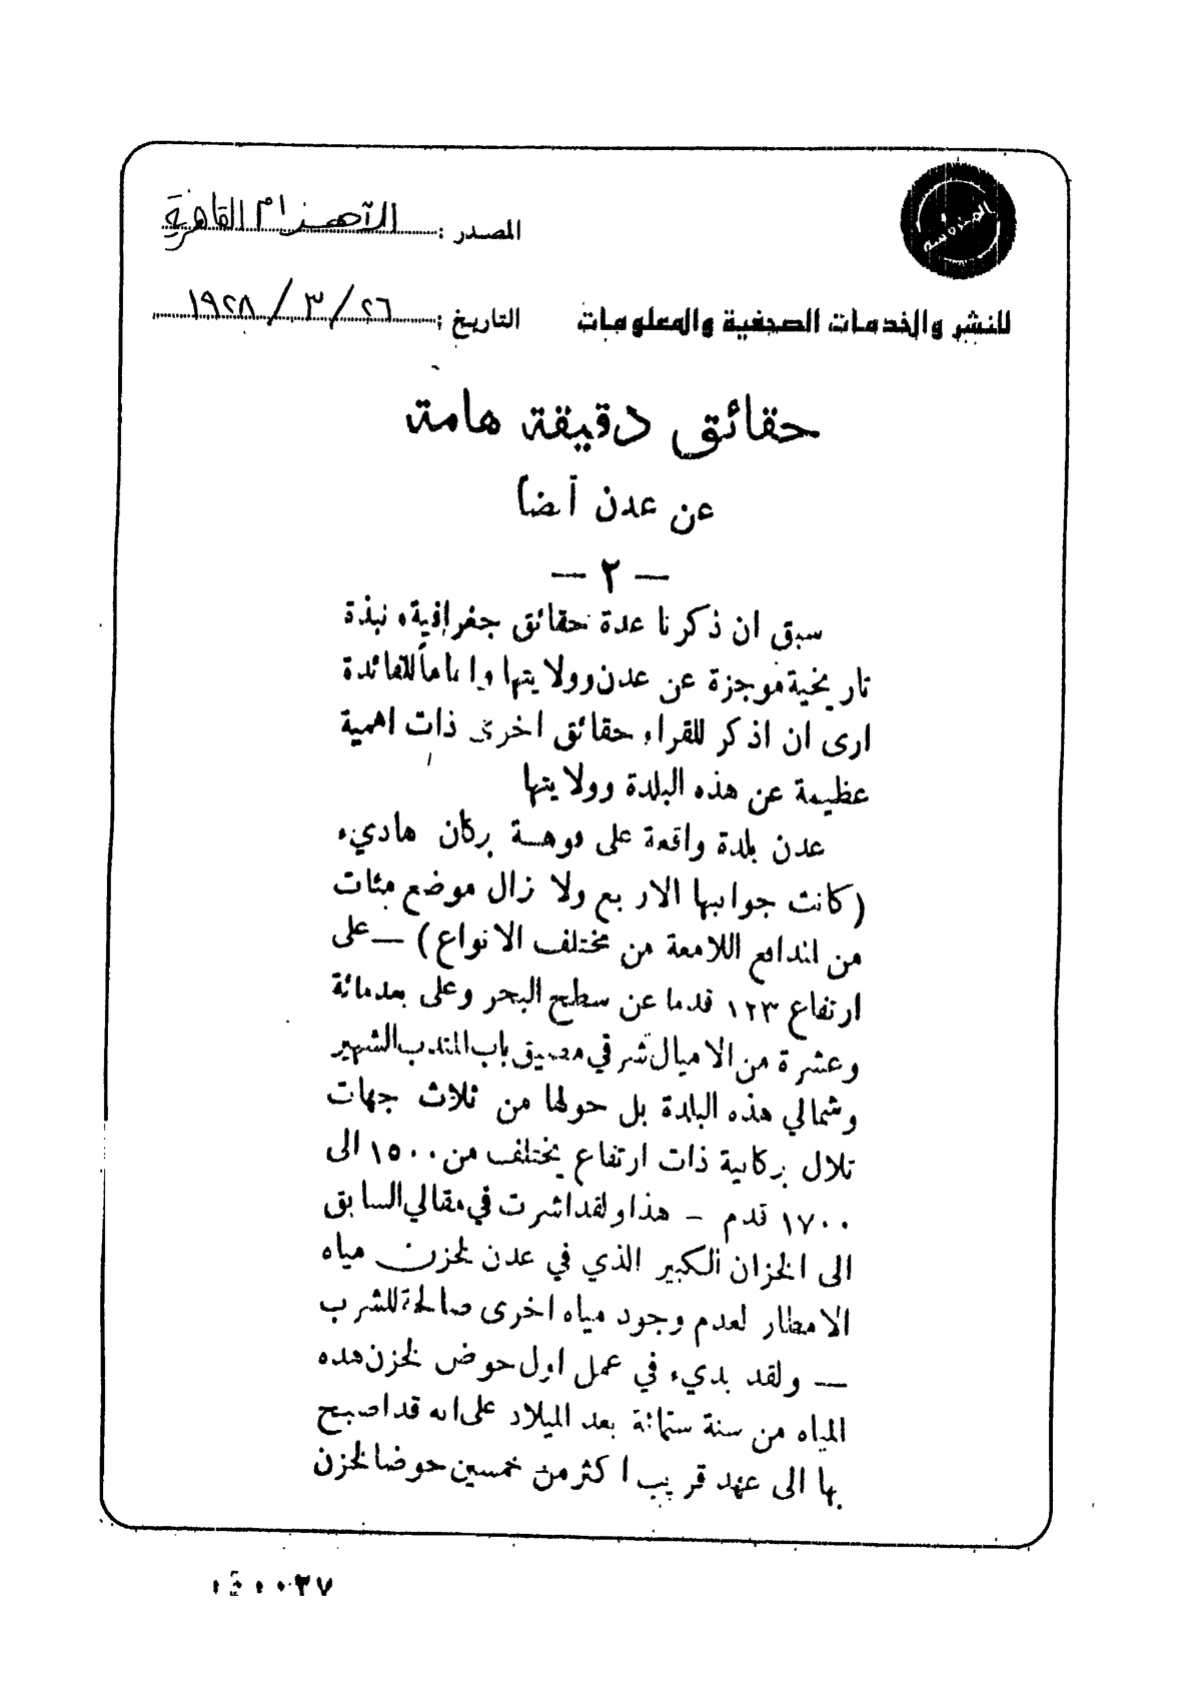 المصدر : الأهرام القاهرية
التاريخ : ٢٦ / ٣ / ١٩٢٨
للنشر والخدمات الصحفية والمعلومات
حقائق دقيقة هامة
عن عدن أيضاً
— ٢ —
سبق ان ذكرنا عدة حقائق جغرافية، نبذة
تاريخية موجزة عن عدن وولايتها واتماماً للفائدة
ارى ان اذكر للقراء حقائق اخرى ذات اهمية
عظيمة عن هذه البلدة وولايتها
عدن بلدة واقعة على فوهة بركان هاديء
(كانت جوانبها الاربع ولا زال موضع مئات
من المدافع اللامعة من مختلف الانواع) — على
ارتفاع ١٢٣ قدما عن سطح البحر وعلى بعد مائة
وعشرة من الاميال شرقي مضيق باب المندب الشهير
وشمالي هذه البلدة بل حولها من ثلاث جهات
تلال بركانية ذات ارتفاع يختلف من ١٥٠٠ الى
١٧٠٠ قدم – هذا ولقد اشرت في مقالي السابق
الى الخزان الكبير الذي في عدن لخزن مياه
الامطار لعدم وجود مياه اخرى صالحة للشرب
— ولقد بديء في عمل اول حوض لخزن هذه
المياه من سنة ستمائة بعد الميلاد على انه قد اصبح
بها الى عهد قريب اكثر من خمسين حوضا لخزن